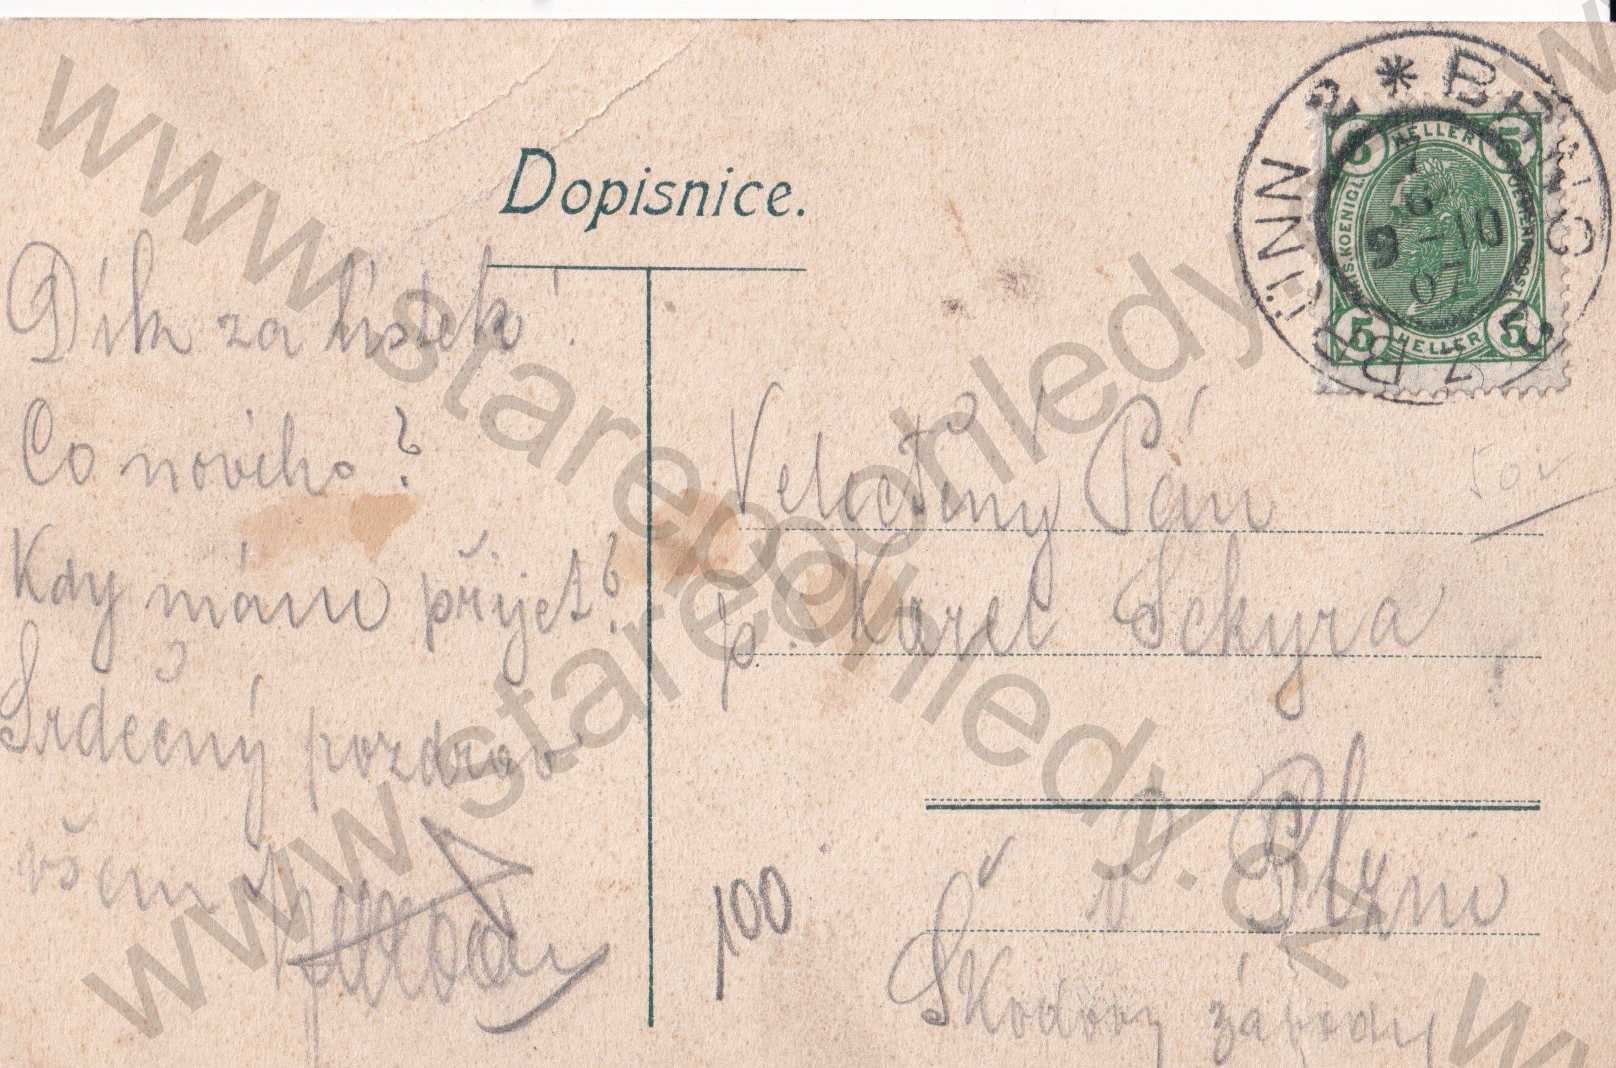 Dopisnice.
Dík za lístek!
Co nového?
Kdy mám přijet?
Srdečný pozdrav
všem
Veloctěný Pán
p. Karel Sekyra
v Plzni
Škodovy závody
100
50
BRNO 2
BRÜNN 2
7
6
9-10
07
5 HELLER 5
KAIS. KOENIGL. OESTERR. POST
5 HELLER 5
www.starepohledy.cz
www.starepohledy.cz